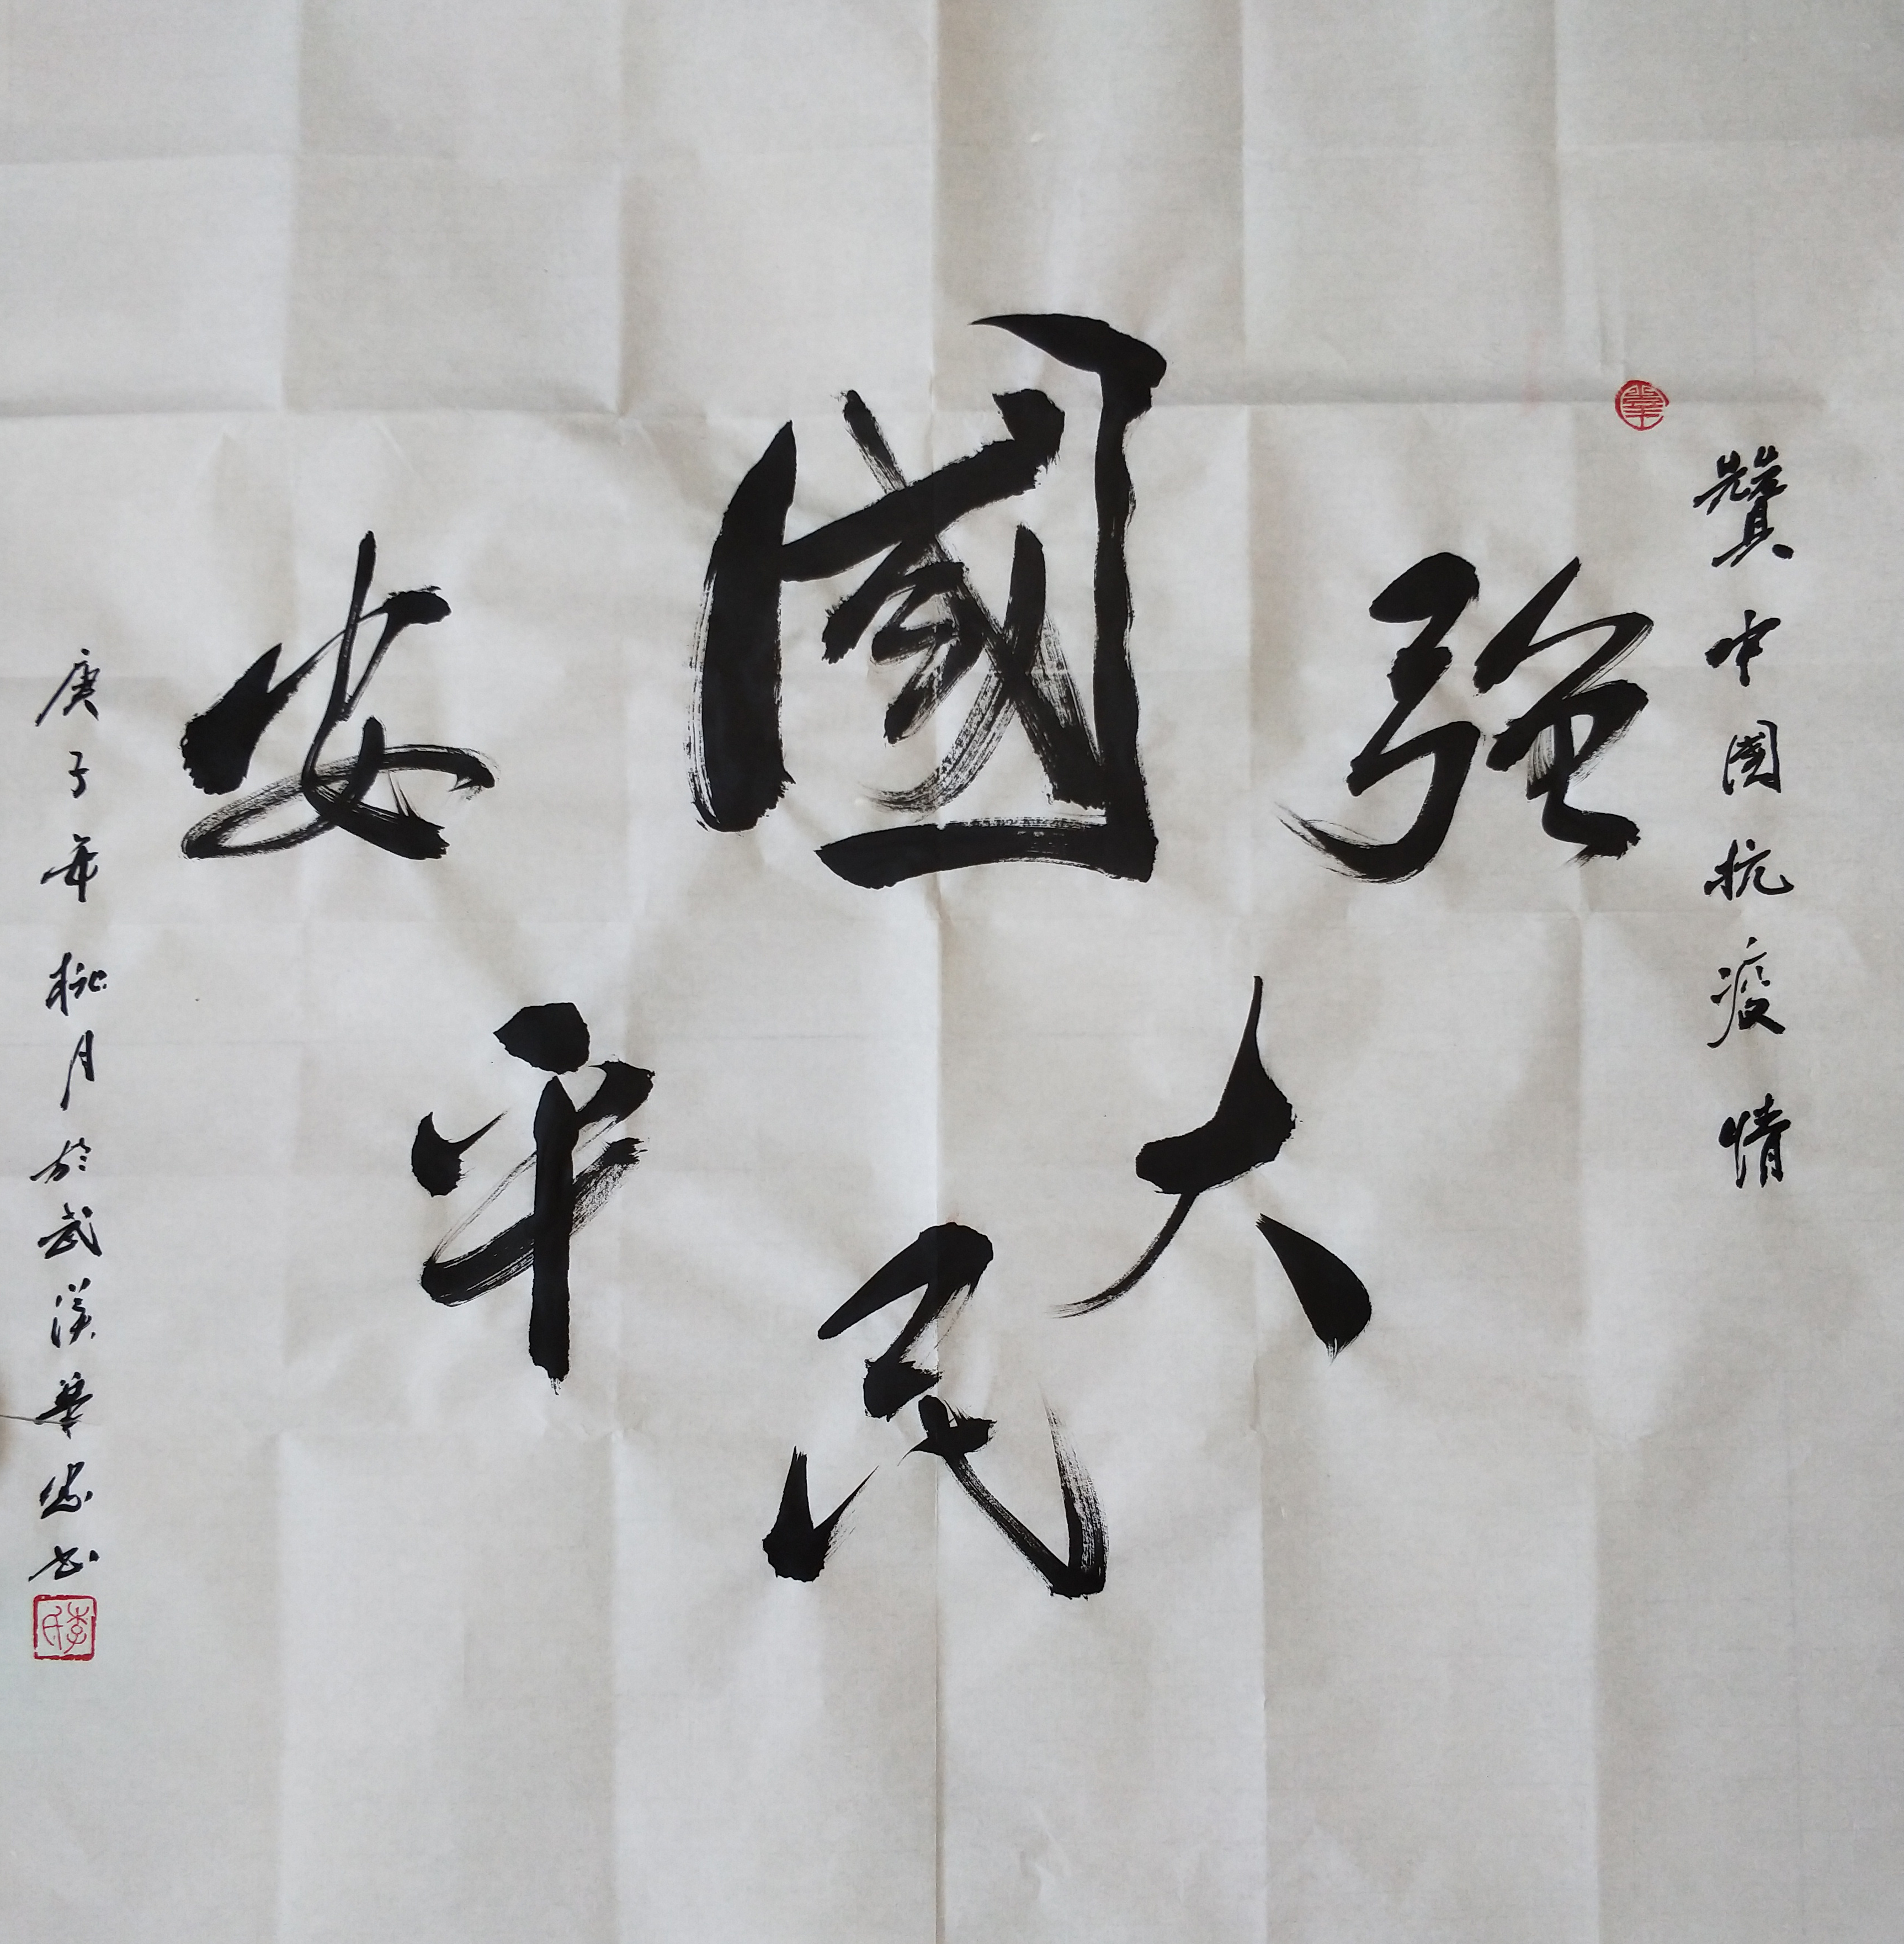 贊中國抗疫情
國强大
民平安
庚子年桃月於武漢華忠书